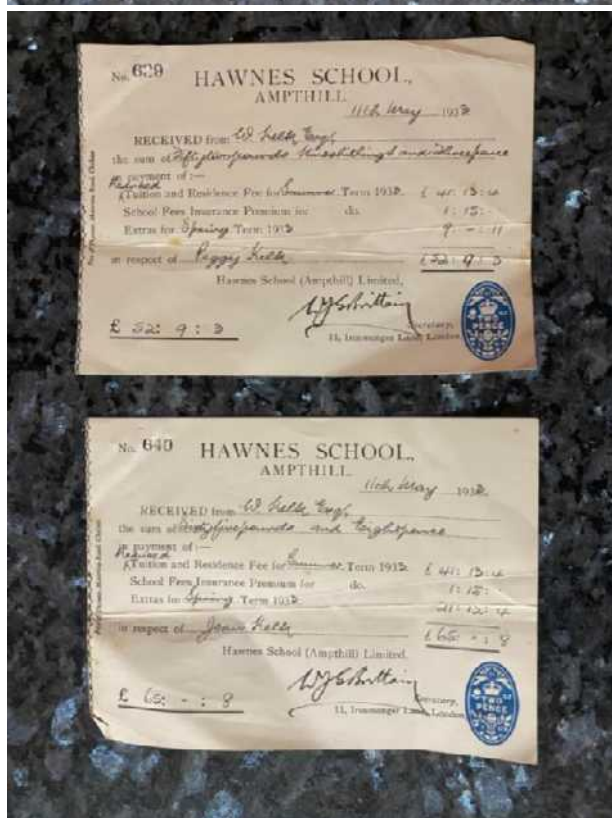 No. 639
HAWNES SCHOOL,
AMPTHILL
11th May 1932
RECEIVED from W. Kelk Esq.
the sum of Fiftytwo pounds nine shillings and threepence
in payment of :—
Reduced
Tuition and Residence Fee for Summer Term 1932. £ 41 : 13 : 4
School Fees Insurance Premium for do. 1 : 15 : -
Extras for Spring Term 1932 9 : - : 11
in respect of Peggy Kelk £52 : 9 : 3
Hawnes School (Ampthill) Limited,
£ 52 : 9 : 3
Secretary,
11, Ironmonger Lane, London
No. 640
HAWNES SCHOOL,
AMPTHILL
11th May 1932
RECEIVED from W. Kelk Esq.
the sum of Sixtyfive pounds and Eightpence
in payment of :—
Reduced
Tuition and Residence Fee for Summer Term 1932 £ 41 : 13 : 4
School Fees Insurance Premium for do. 1 : 15 : -
Extras for Spring Term 1932 21 : 12 : 4
in respect of Jean Kelk £65 : - : 8
Hawnes School (Ampthill) Limited,
£ 65 : - : 8
Secretary,
11, Ironmonger Lane, London
TWO
PENCE